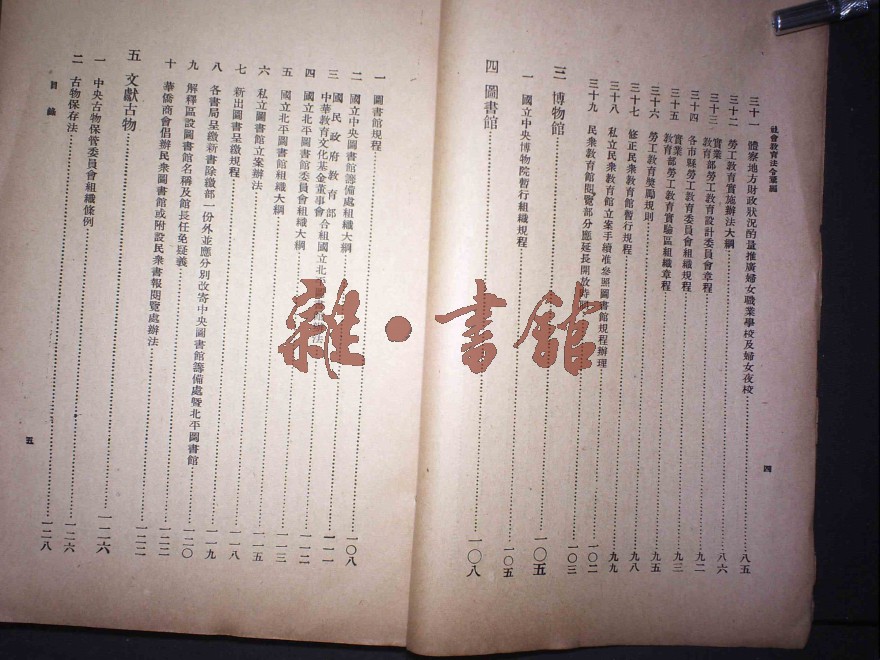 社會教育法令彙編
三十一 體察地方財政狀況酌量推廣婦女職業學校及婦女夜校 八五
三十二 勞工教育實施辦法大綱 八六
三十三 實業教育部勞工教育設計委員會章程
三十四 各市縣勞工教育委員會組織規程 九二
三十五 實業教育部勞工教育實驗區組織章程 九三
三十六 勞工教育獎勵規則 九五
三十七 修正民衆教育館暫行規程 九八
三十八 私立民衆教育館立案手續准參照圖書館規程辦理 九九
三十九 民衆教育館閱覽部分應延長開放時間 一〇二
一〇三
三 博物館 一〇五
一 國立中央博物院暫行組織規程 一〇五
四 圖書館 一〇八
四
一 圖書館規程 一〇八
二 國立中央圖書館籌備處組織大綱 一一一
三 國民政府教育部中華教育文化基金董事會合組國立北平圖書館辦法
四 國立北平圖書館委員會組織大綱
五 國立北平圖書館組織大綱 一一三
六 私立圖書館立案辦法 一一五
七 新出圖書呈繳規程 一一八
八 各書局呈繳新書除繳部一份外並應分別改寄中央圖書館籌備處暨北平圖書館 一一九
九 解釋區設圖書館名稱及館長任免疑義 一二〇
十 華僑商會倡辦民衆圖書館或附設民衆書報閱覽處辦法 一二二
五 文獻古物 一二二
一 中央古物保管委員會組織條例 一二六
二 古物保存法 一二六
一二八
目錄
五
雜·書館